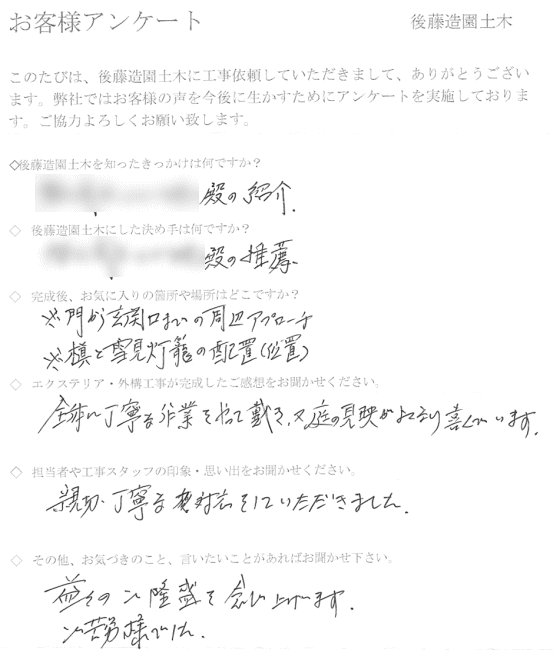 お客様アンケート 後藤造園土木
このたびは、後藤造園土木に工事依頼していただきまして、ありがとうござい
ます。弊社ではお客様の声を今後に生かすためにアンケートを実施しておりま
す。ご協力よろしくお願い致します。
◇後藤造園土木を知ったきっかけは何ですか？
殿の紹介.
◇ 後藤造園土木にした決め手は何ですか？
殿の推薦、
◇ 完成後、お気に入りの箇所や場所はどこですか？
※門から玄関口までの周辺アプローチ
※槙と雪見灯籠の配置(位置)
◇ エクステリア・外構工事が完成したご感想をお聞かせください。
全体に丁寧な作業をやって戴き、又庭の見映がよくなり喜んでいます.
◇ 担当者や工事スタッフの印象・思い出をお聞かせください。
親切、丁寧な対応をしていただきました.
◇ その他、お気づきのこと、言いたいことがあればお聞かせ下さい。
益々のご隆盛を念じ上げます.
ご苦労様でした.